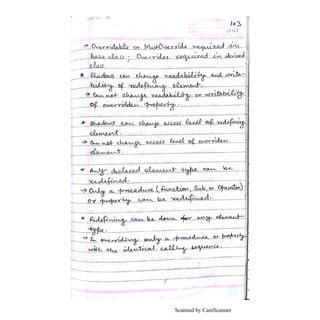 103
→ Overridable or MustOverride required in
base class; Overrides required in derived
class.
* Shadows can change readability and writa-
bility of redefining element.
→ Can not change readability or writability
of overridden property.
* Shadows can change access level of redefining
element.
→ Can not change access level of overriden
element.
* Any declared element type can be
redefined.
→ Only a procedure (Function, Sub, or Operator)
or property can be redefined.
* Redefining can be done for any element
type.
→ In overriding only a procedure or property
with the identical calling sequence.
Scanned by CamScanner